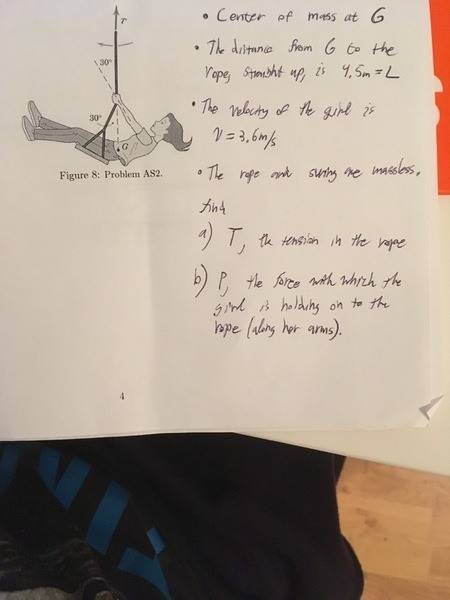 • Center of mass at G
• The distance from G to the
rope, straight up, is 4,5m = L
• The velocity of the girl is
v = 3,6m/s
• The rope and swing are massless.
find
a) T, the tension in the rope
b) P, the force with which the
girl is holding on to the
rope (along her arms).
T
30°
30°
G
Figure 8: Problem AS2.
4